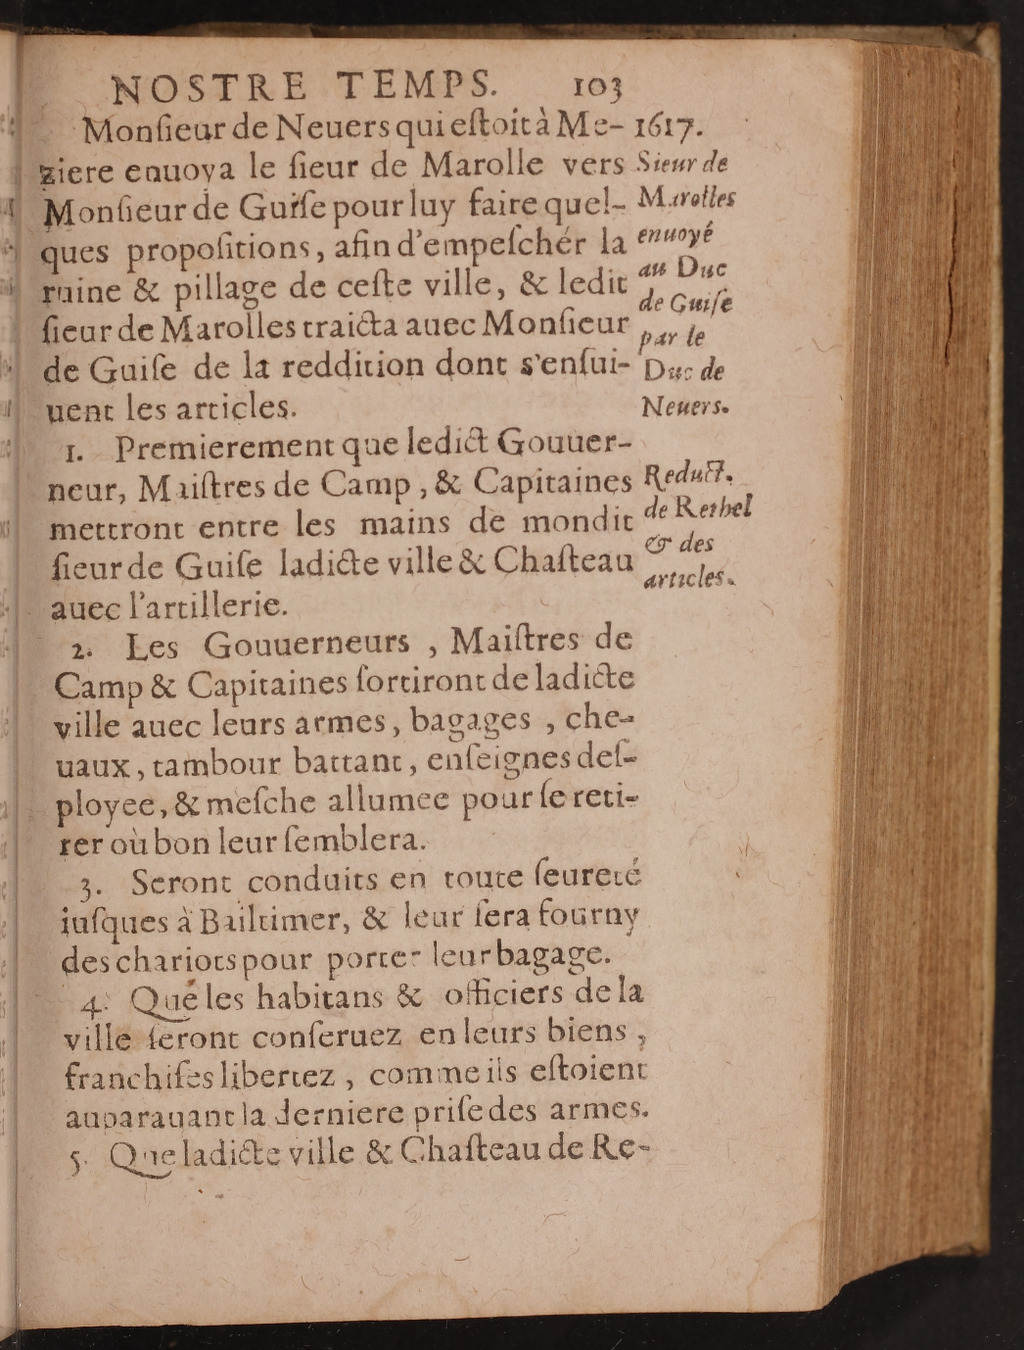 NOSTRE TEMPS. 103
Monſieur de Neuers qui eſtoit à Me- 1617.
ziere enuoya le ſieur de Marolle vers
Monſieur de Guiſe pour luy faire quel-
ques propoſitions, afin d'empeſchér la
ruine & pillage de ceſte ville, & ledit
ſieur de Marolles traicta auec Monſieur
de Guiſe de la reddition dont s'enſui-
uent les articles.
1. Premierement que ledict Gouuer-
neur, Maiſtres de Camp, & Capitaines
mettront entre les mains de mondit
ſieur de Guiſe ladicte ville & Chaſteau
auec l'artillerie.
2. Les Gouuerneurs, Maiſtres de
Camp & Capitaines ſortiront de ladicte
ville auec leurs armes, bagages, che-
uaux, tambour battant, enſeignes deſ-
ployee, & meſche allumee pour ſe reti-
rer où bon leur ſemblera.
3. Seront conduits en toute ſeureté
iuſques à Bailtimer, & leur ſera fourny
des chariots pour porter leur bagage.
4. Que les habitans & officiers de la
ville ſeront conſeruez en leurs biens,
franchiſes libertez, comme ils eſtoient
auparauant la derniere priſe des armes.
5. Que ladicte ville & Chaſteau de Re-
Sieur de
Marolles
enuoyé
au Duc
de Guiſe
par le
Duc de
Neuers.
Reduct.
de Rethel
& des
articles.